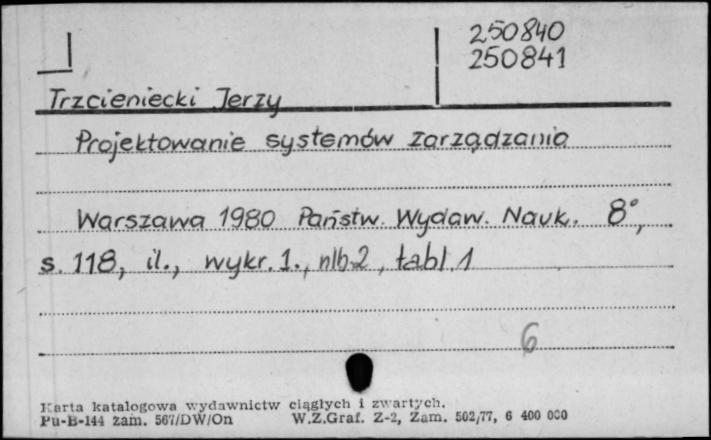 250840
250841
Trzcieniecki Jerzy
Projektowanie systemów zarządzania
Warszawa 1980 Państw. Wydaw. Nauk. 8°,
s. 118, il., wykr. 1., nlb 2, tabl. 1
6
Karta katalogowa wydawnictw ciągłych i zwartych.
Pu-B-144 zam. 567/DW/On W.Z.Graf. Z-2, Zam. 502/77, 6 400 000